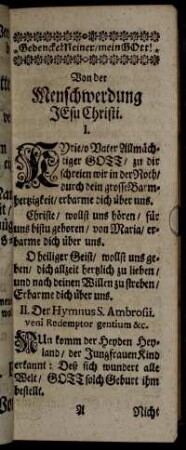 Gedencke Meiner/ mein GOtt!
Von der
Menschwerdung
JEsu Christi.
I.
KYrie/ o Vater Allmäch-
tiger GOTT/ zu dir
schreien wir in der Noth/
durch dein grosse Barm-
hertzigkeit/ erbarme dich über uns.
Christe/ wollst uns hören/ für
uns bistu geboren/ von Maria/ er-
barme dich über uns.
O heiliger Geist/ wollst uns ge-
ben/ dich allzeit hertzlich zu lieben/
und nach deinen Willen zu streben/
Erbarme dich über uns.
II. Der Hymnus S. Ambrosii.
veni Redemptor gentium &c.
NUn komm der Heyden Hey-
land/ der Jungfrauen Kind
erkannt: Deß sich wundert alle
Welt/ GOTT solch Geburt ihm
bestellt.
A Nicht